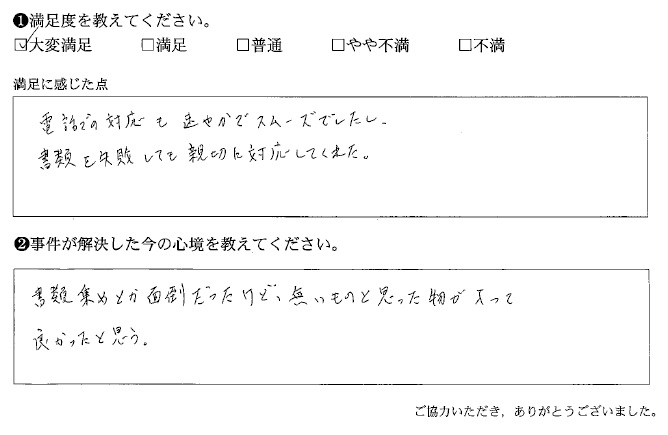 ❶満足度を教えてください。
☑大変満足 □満足 □普通 □やや不満 □不満
満足に感じた点
電話での対応も速やかでスムーズでしたし、
書類を失敗しても親切に対応してくれた。
❷事件が解決した今の心境を教えてください。
書類集めとか面倒だったけど、無いものと思った物が入って
良かったと思う。
ご協力いただき、ありがとうございました。